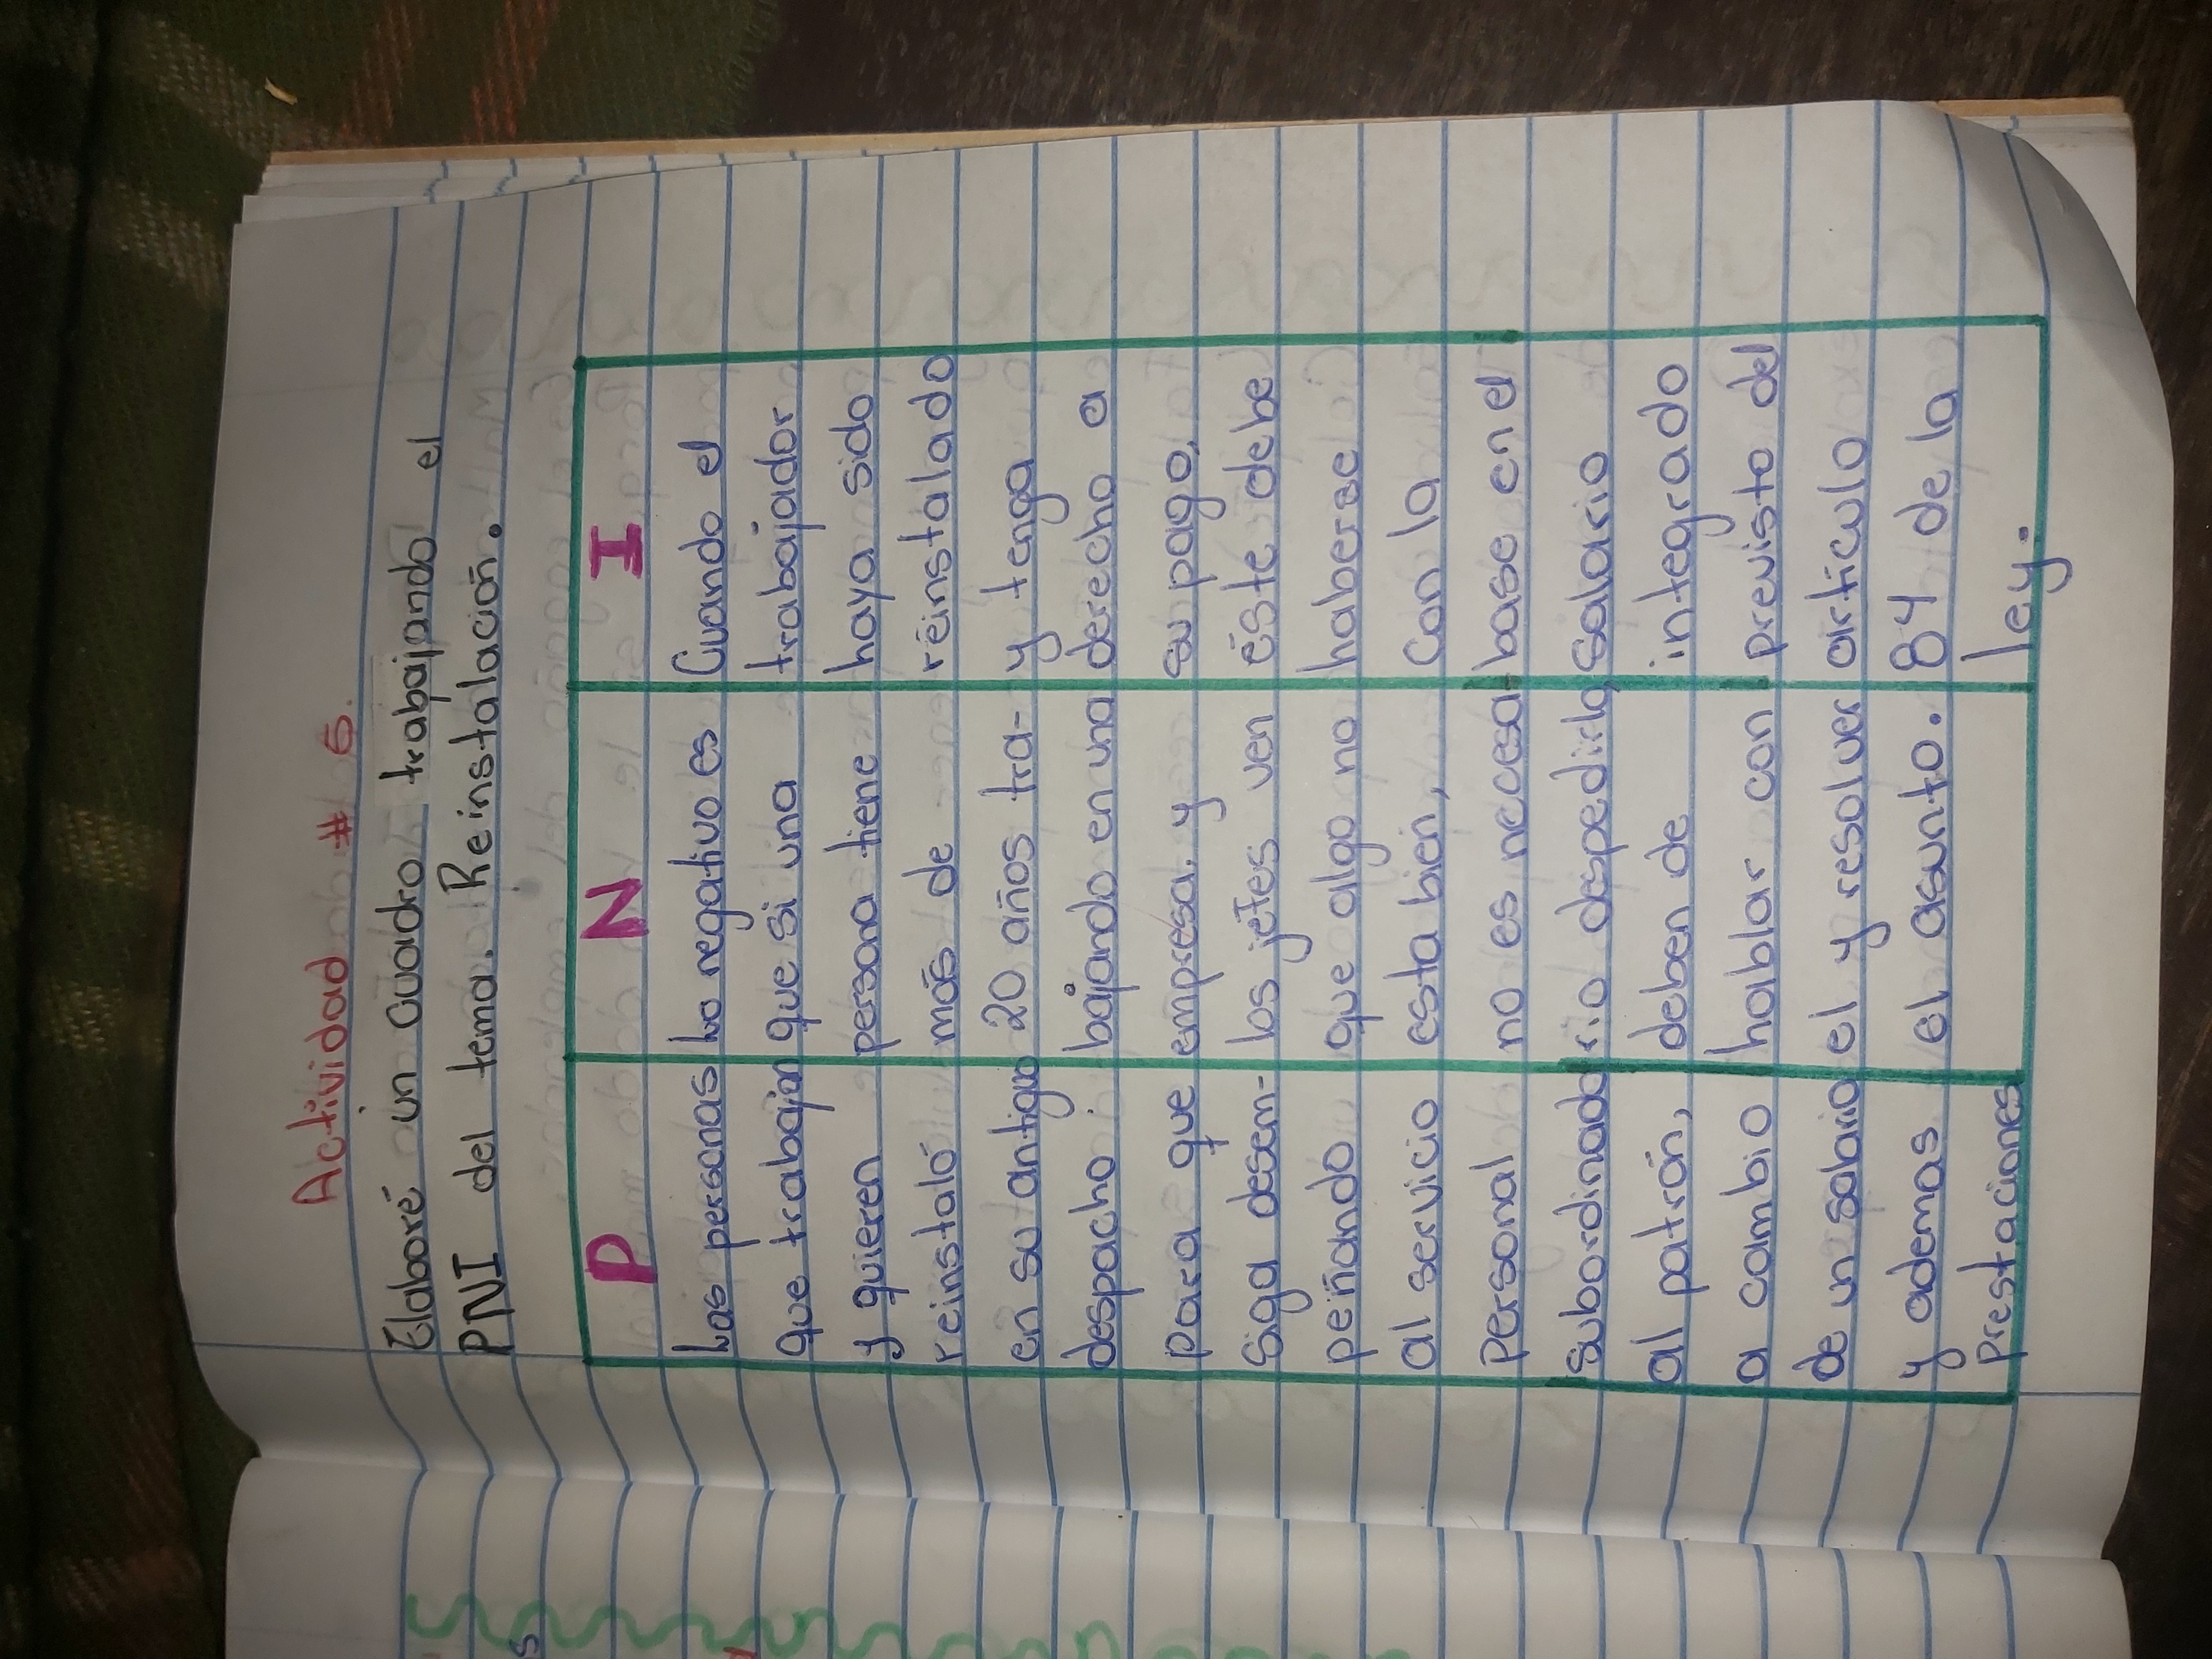 Actividad # 6.
Elaboré un cuadro trabajando el
PNI del tema. Reinstalación.
P
Las personas
que trabajan
y quieren
reinstaló
en su antiguo
despacho
para que
siga desem-
peñando
al servicio
Personal
subordinado
al patrón,
a cambio
de un salario
y ademas
prestaciones
N
Lo negativo es
que si una
persona tiene
más de
20 años tra-
bajando en una
empresa, y
los jefes ven
que algo no
esta bien,
no es necesa-
rio despedirlo,
deben de
hablar con
el y resolver
el asunto.
I
Cuando el
trabajador
haya sido
reinstalado
y tenga
derecho a
su pago,
éste debe
haberse
con la
base en el
salario
integrado
previsto del
artículo
84 de la
ley.